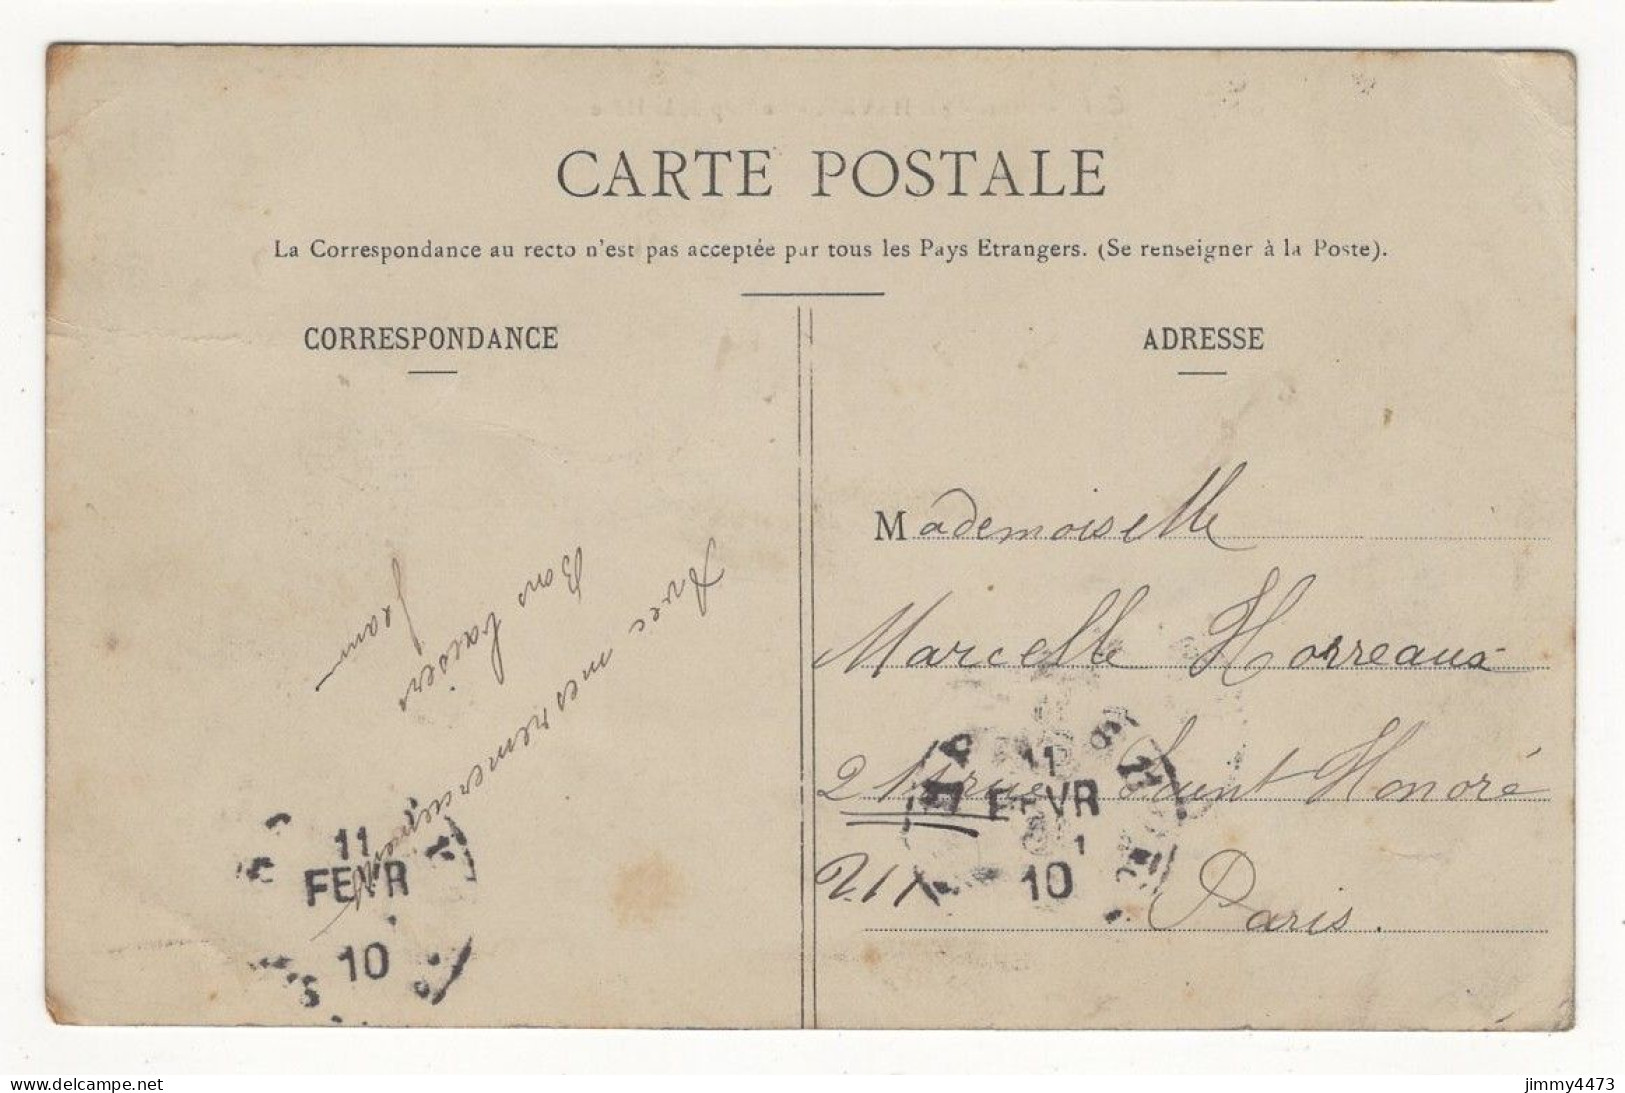 CARTE POSTALE
La Correspondance au recto n'est pas acceptée par tous les Pays Etrangers. (Se renseigner à la Poste).
CORRESPONDANCE
Avec mes remerciements
Bons baisers
Jeanne
11
FEVR
10
ADRESSE
Mademoiselle
Marcelle Horreaux
211 rue Saint Honoré
211
Paris.
11
FEVR
10
delcampe.net
jimmy4473